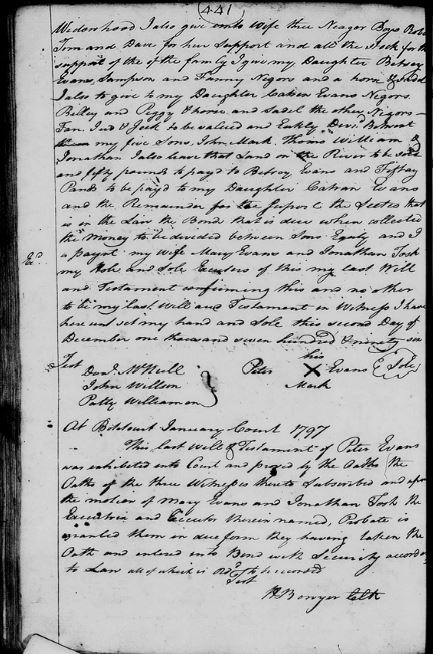 441
Widowhood I also give unto Wife three Neagor Boys Robe
Tom and Dave for her Support and all the Stock for the
support of the of the family I give my Daughter Betsey
Evans, Sampson and Fanny Negors and a horse & Saddl
I also to give to my Daughter Catren Evans Negors
Bettey and Peggy & horse and Sadel the other Negors
Fan. Jud & Jack to be valued and Eakly Devi.d Betwixt
my five Sons, John Mark. Thoms William &
Jonathan I also leave that Land on the River to be sold
and fifty pounds to pay'd to Betsey Evans and Fiftay
Pands to be pay'd to my Daughter Catran Evans
and the Remainder for the Suport the Scates that
is in the Law the Bond that is due when collected
the Money to be divided between Sons Equly and I
a paynt my Wife Mary Evans and Jonathan Tosh
Ex.d
my Hole and Sole Executors of this my last Will
and Testament confirming this and no other
to be my last Will and Testament in Witness I have
here unto set my hand and Sole this second Day of
December one thousand seven hundred & ninety six
Test
his
Don.d McNeill
Peter X Evans Sole
John Willson
Mark
Patty Williamson
At Botetourt January Court 1797
This last Will & Testament of Peter Evans
was exhibited into Court and proved by the Oaths the
Oaths of the three Witnesses thereto Subscribed and upon
the motion of Mary Evans and Jonathan Tosh the
Executrix and Executor therein named, Probate is
granted them in due form they having taken the
Oath and entered into Bond with Security accordin
to Law all of which is Ord.d to be recorded
Test
H Bowyer Clk